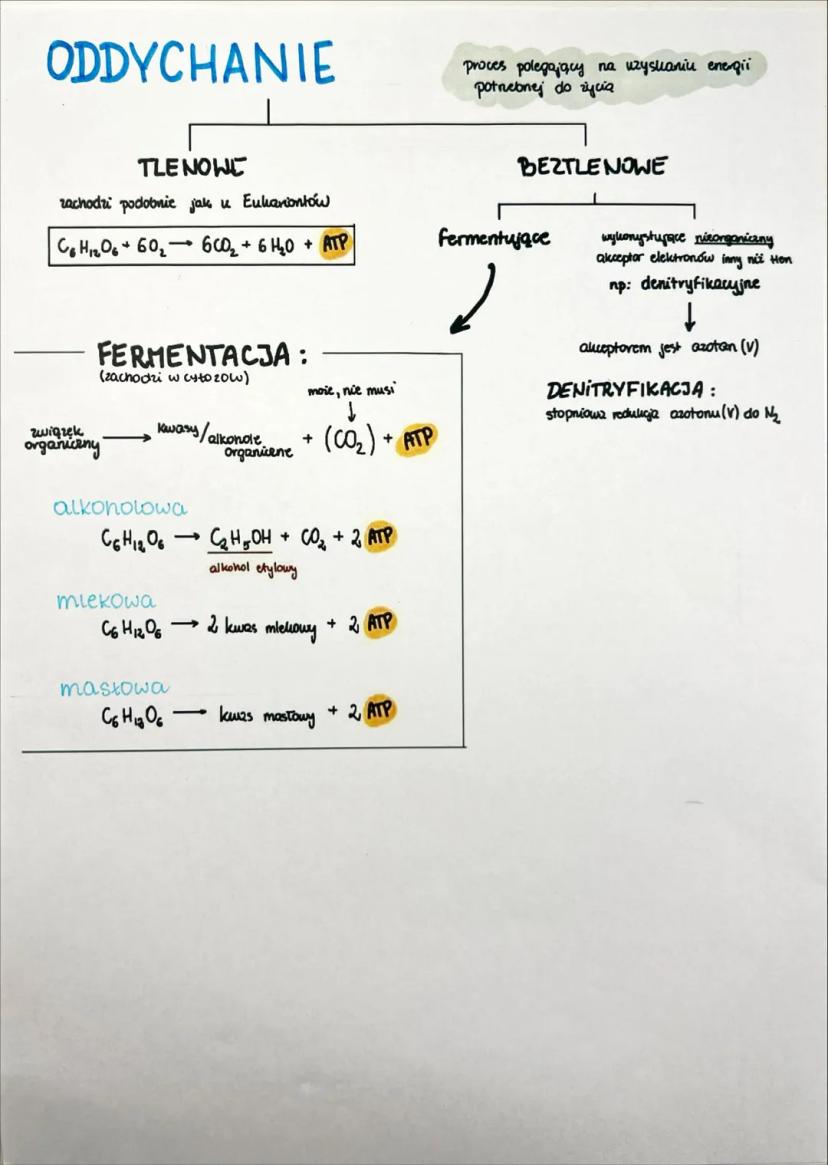 ODDYCHANIE
proces polegający na uzyskaniu energii
potrzebnej do życia
TLENOWE
zachodzi podobnie jak u Eukariontów
C₆H₁₂O₆ + 6O₂ → 6CO₂ + 6H₂O + ATP
BEZTLENOWE
fermentujące
wykorzystujące nieorganiczny
akceptor elektronów inny niż tlen
np: denitryfikacyjne
akceptorem jest azotan (V)
DENITRYFIKACJA:
stopniowa redukcja azotanu(V) do N₂
FERMENTACJA:
(zachodzi w cytozolu)
może, nie musi
związek organiczny → kwasy/alkohole organiczne + (CO₂) + ATP
alkoholowa
C₆H₁₂O₆ → C₂H₅OH + CO₂ + 2 ATP
alkohol etylowy
mlekowa
C₆H₁₂O₆ → 2 kwas mlekowy + 2 ATP
masłowa
C₆H₁₂O₆ → kwas masłowy + 2 ATP